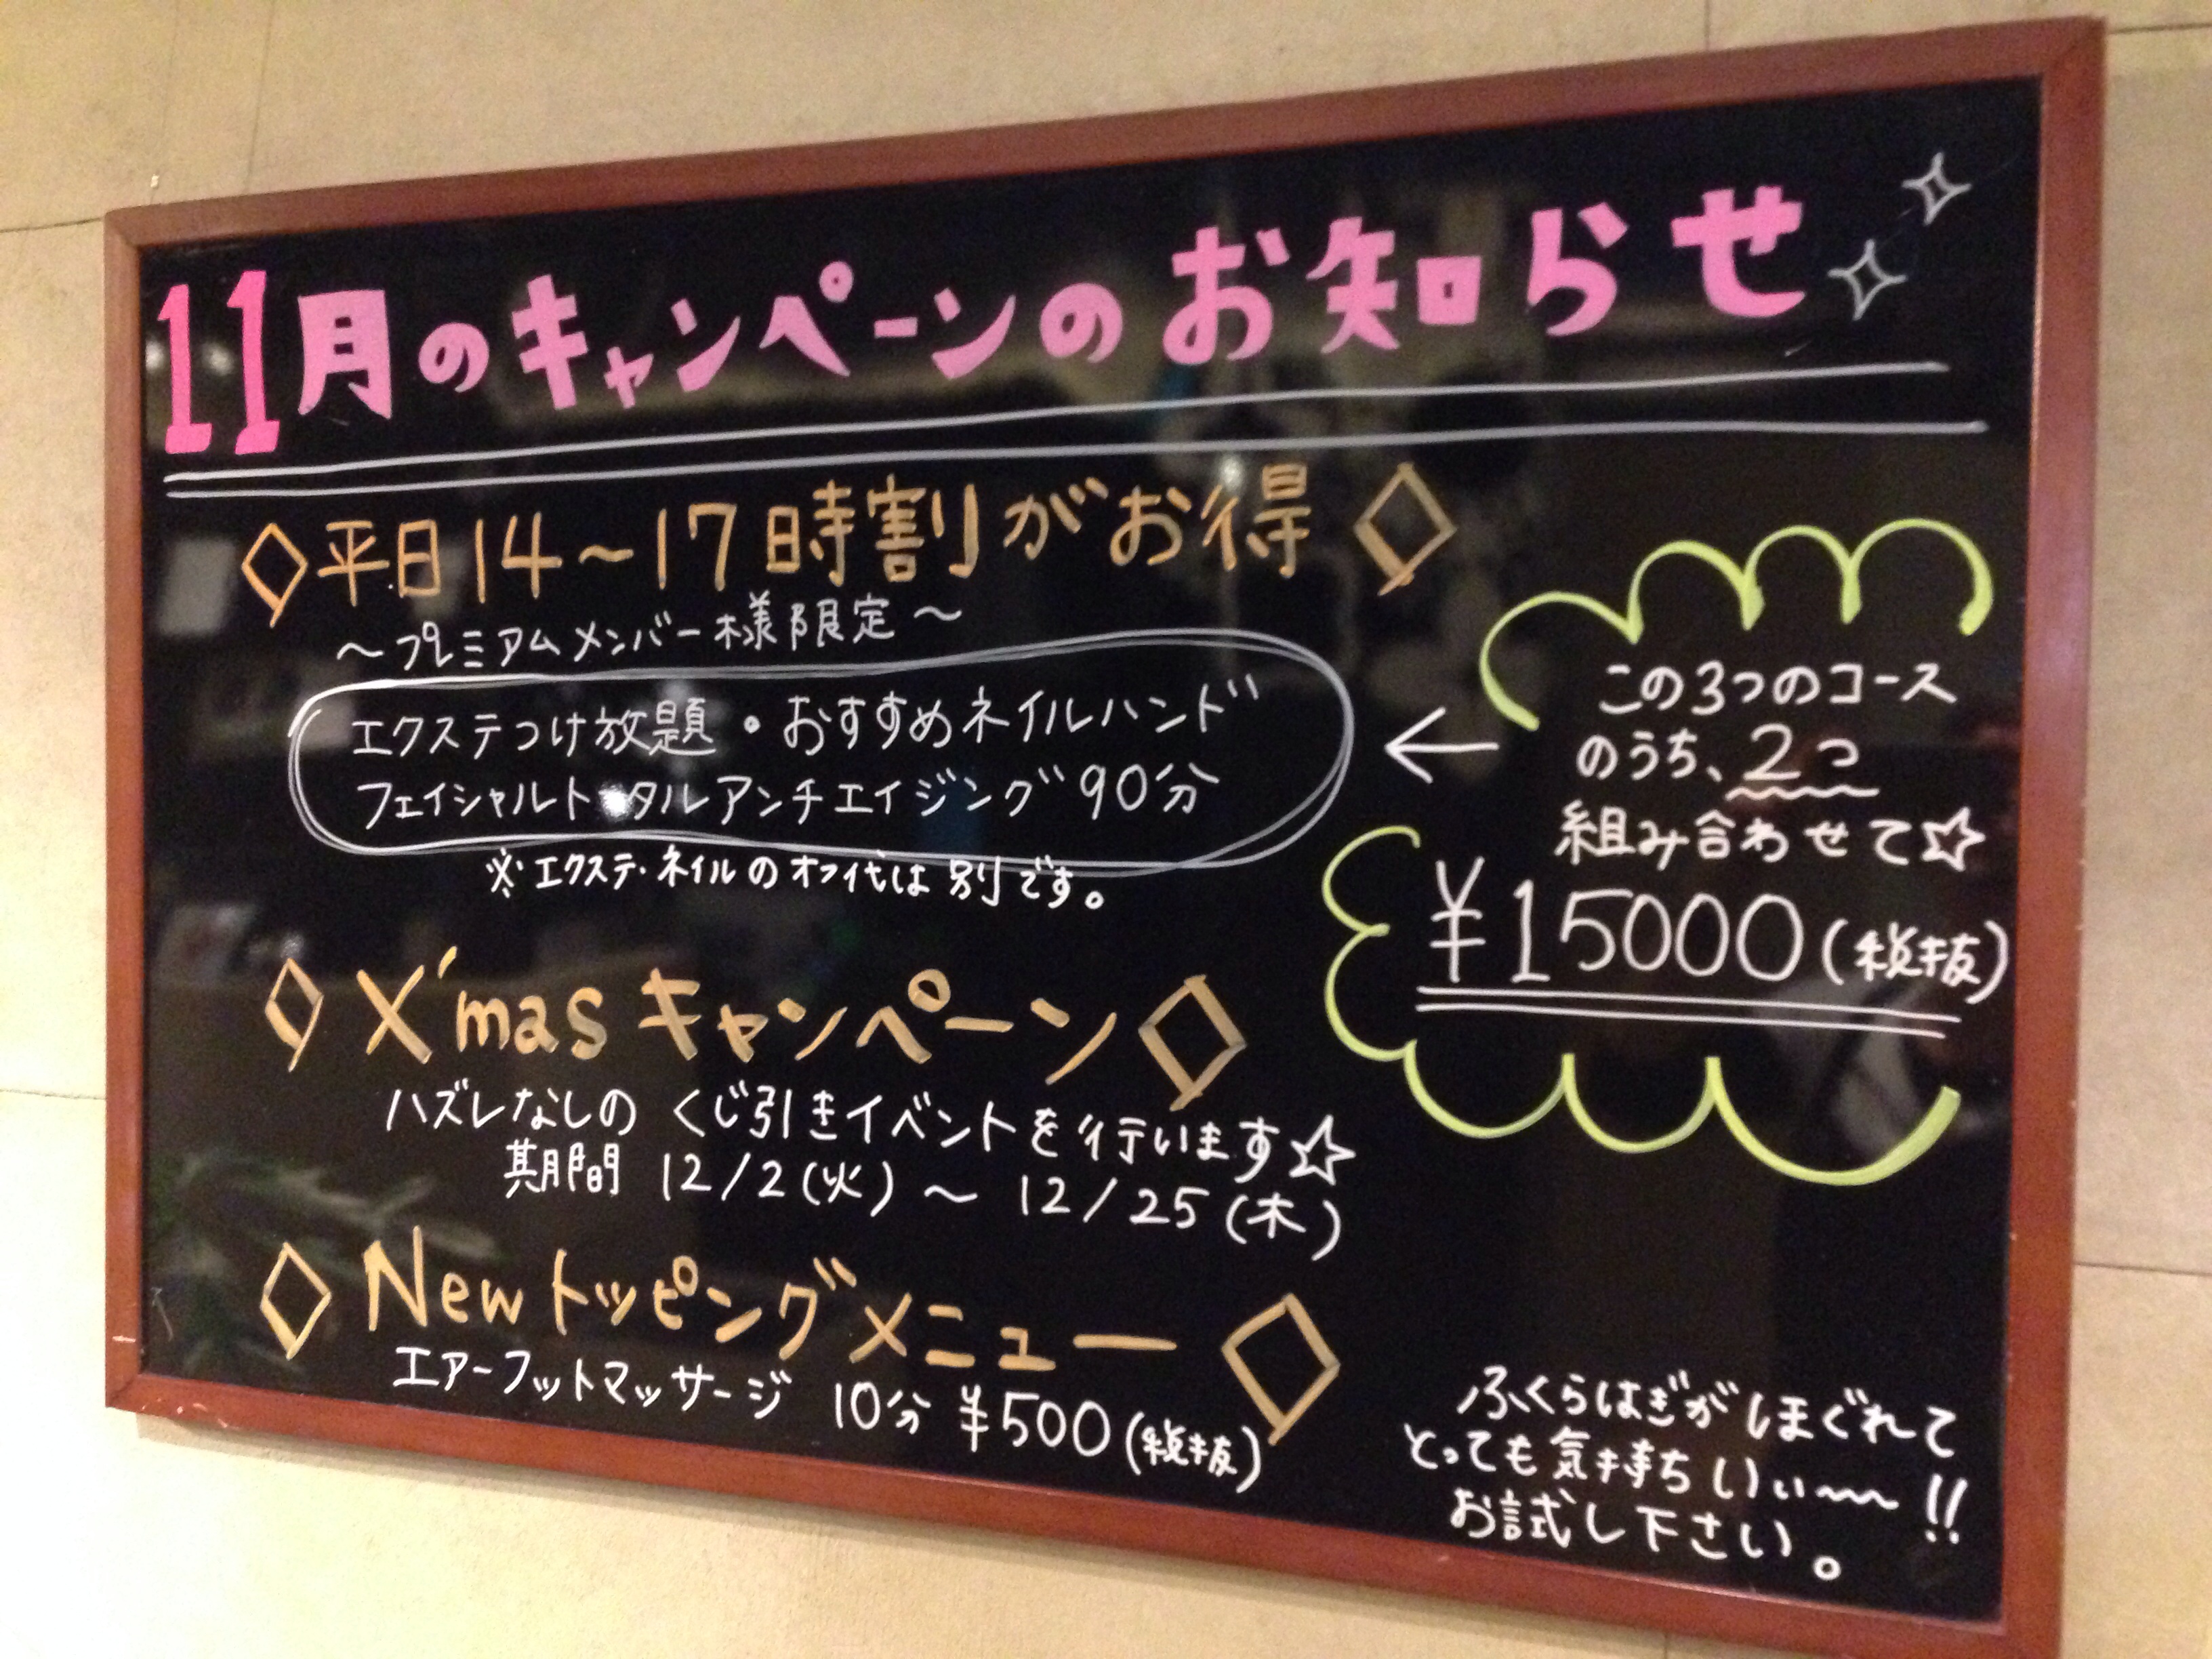 11月のキャンペーンのお知らせ
◇平日14～17時割がお得◇
～プレミアムメンバー様限定～
エクステつけ放題・おすすめネイルハンド
フェイシャルトータルアンチエイジング90分
※エクステ・ネイルのオフ代は別です。
この3つのコース
のうち、2つ
組み合わせて☆
¥15000(税抜)
◇X'masキャンペーン◇
ハズレなしのくじ引きイベントを行います☆
期間 12/2(火)～12/25(木)
◇Newトッピングメニュー◇
エアーフットマッサージ 10分 ¥500(税抜)
ふくらはぎがほぐれて
とっても気持ちいぃ〜〜!!
お試し下さい。